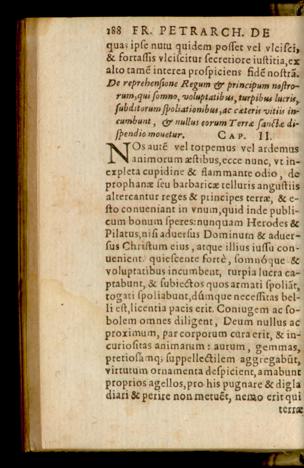 188 FR. PETRARCH. DE
qua; ipse nutu quidem posset vel vlcisci,
& fortassis vlciscitur secretiore iustitia, ex
alto tamē interea prospiciens fidē nostrā.
De reprehensione Regum & principum nostro-
rum, qui somno, voluptatibus, turpibus lucris,
subditorum spoliationibus, ac cæteris vitiis in-
cumbunt, & nullus eorum Terræ sanctæ di-
spendio mouetur. CAP. II.
NOs autē vel torpemus vel ardemus
animorum æstibus, ecce nunc, vt in-
expleta cupidine & flammante odio, de
prophanæ seu barbaricæ telluris angustiis
altercantur reges & principes terræ, & e-
sto conueniant in vnum, quid inde publi-
cum bonum speres: nunquam Herodes &
Pilatus, nisi aduersus Dominum & aduer-
sus Christum eius, atque illius iussu con-
uenient quiescente fortè, somnóque &
voluptatibus incumbent, turpia lucra ca-
ptabunt, & subiectos quos armati spoliāt,
togati spoliabunt, dúmque necessitas bel-
li est, licentia pacis erit. Coniugem ac so-
bolem omnes diligent, Deum nullus ac
proximum, par corporum cura erit, & in-
curiositas animarum: aurum, gemmas,
pretiosāmq; suppellectilem aggregabūt,
virtutum ornamenta despicient, amabunt
proprios agellos, pro his pugnare & digla
diari & perire non metuēt, nemo erit qui
terræ